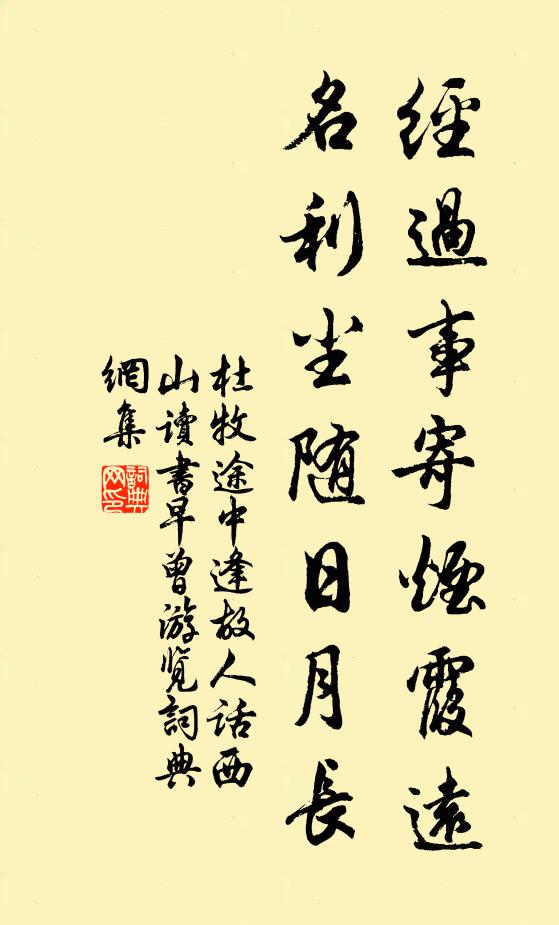 經過事寄煙霞遠
名利尘随日月長
杜牧途中逢故人话西
山读書早曾游览詞典
網集
詞典
网印